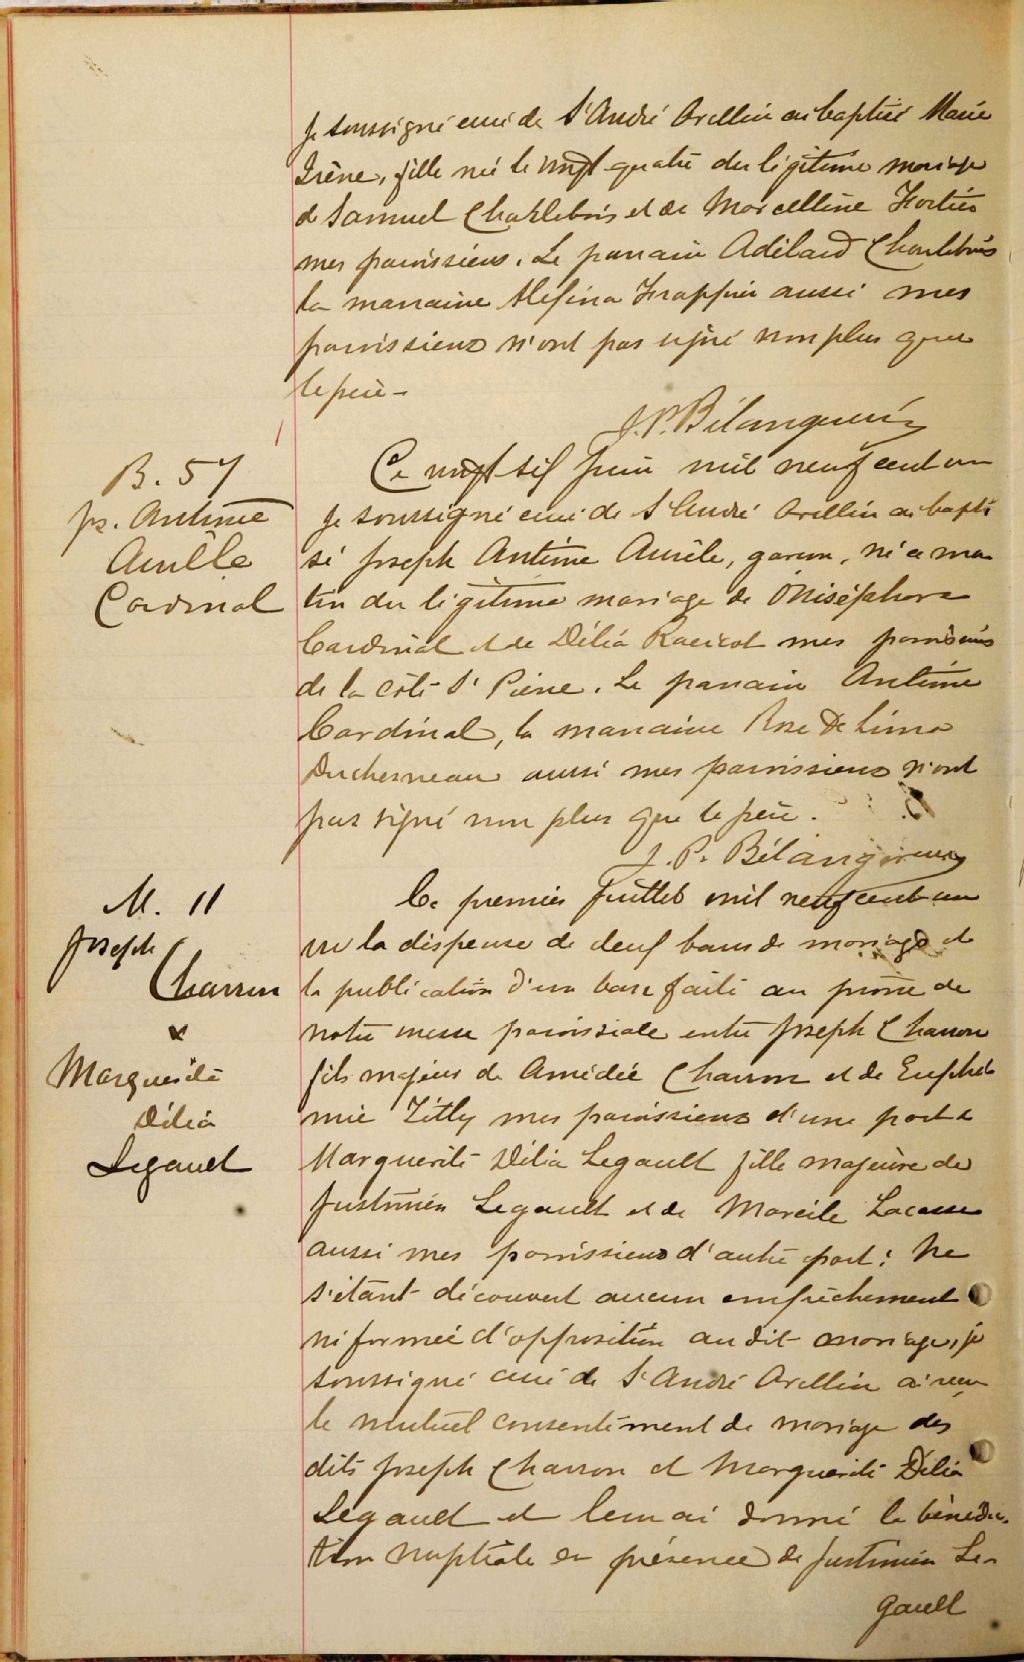 Je soussigné curé de St André Avellin ai baptisé Marie
Irène, fille née le vingt quatre du légitime mariage
de Samuel Charlebois et de Marcelline Fortier
mes paroissiens. Le parrain Adélard Charlebois
la marraine Alefina Frappier aussi mes
paroissiens n'ont pas signé non plus que
le père -
J. P. Bélanger curé
B. 57
Js. Antime
Aurèle
Cardinal
Ce vingt six Juin mil neuf cent un
Je soussigné curé de St André Avellin ai bapti
sé Joseph Antime Aurèle, garçon, né ce ma
tin du légitime mariage de Oniséphore
Cardinal et de Délia Racicot mes paroissiens
de la côte St Pierre. Le parrain Antime
Cardinal, la marraine Rose de Lima
Duchesneau aussi mes paroissiens n'ont
pas signé non plus que le père.
J. P. Bélanger curé
M. 11
Joseph
Charron
&
Marguerite
Délia
Legault
Ce premier Juillet mil neuf cent un
vu la dispense de deux bans de mariage et
la publication d'un ban faite au prône de
notre messe paroissiale entre Joseph Charron
fils majeur de Amédée Charron et de Euphé
mie Titly mes paroissiens d'une part &
Marguerite Délia Legault fille majeure de
Justinien Legault et de Marcile Lacasse
aussi mes paroissiens d'autre part; Ne
s'étant découvert aucun empêchement
ni formée d'opposition au dit mariage, je
soussigné curé de St André Avellin ai reçu
le mutuel consentement de mariage des
dits Joseph Charron et Marguerite Délia
Legault et leur ai donné la bénédic-
tion nuptiale en présence de Justinien Le-
gault